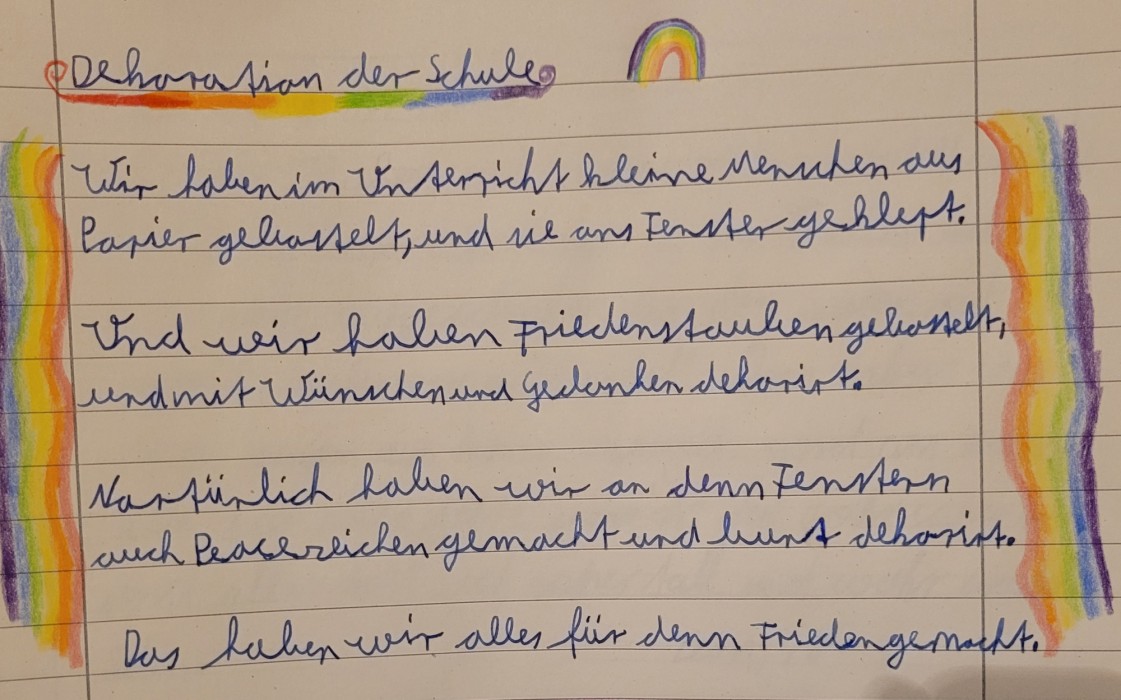 Dekoration der Schule
Wir haben im Unterricht kleine Menschen aus
Papier gebastelt, und sie ans Fenster geklept.
Und wir haben Friedenstauben gebastelt,
und mit Wünschen und Gedanken dekorirt.
Nartürlich haben wir an denn Fenstern
auch Peacezeichen gemacht und bunt dekorirt.
Das haben wir alles für denn Frieden gemacht.